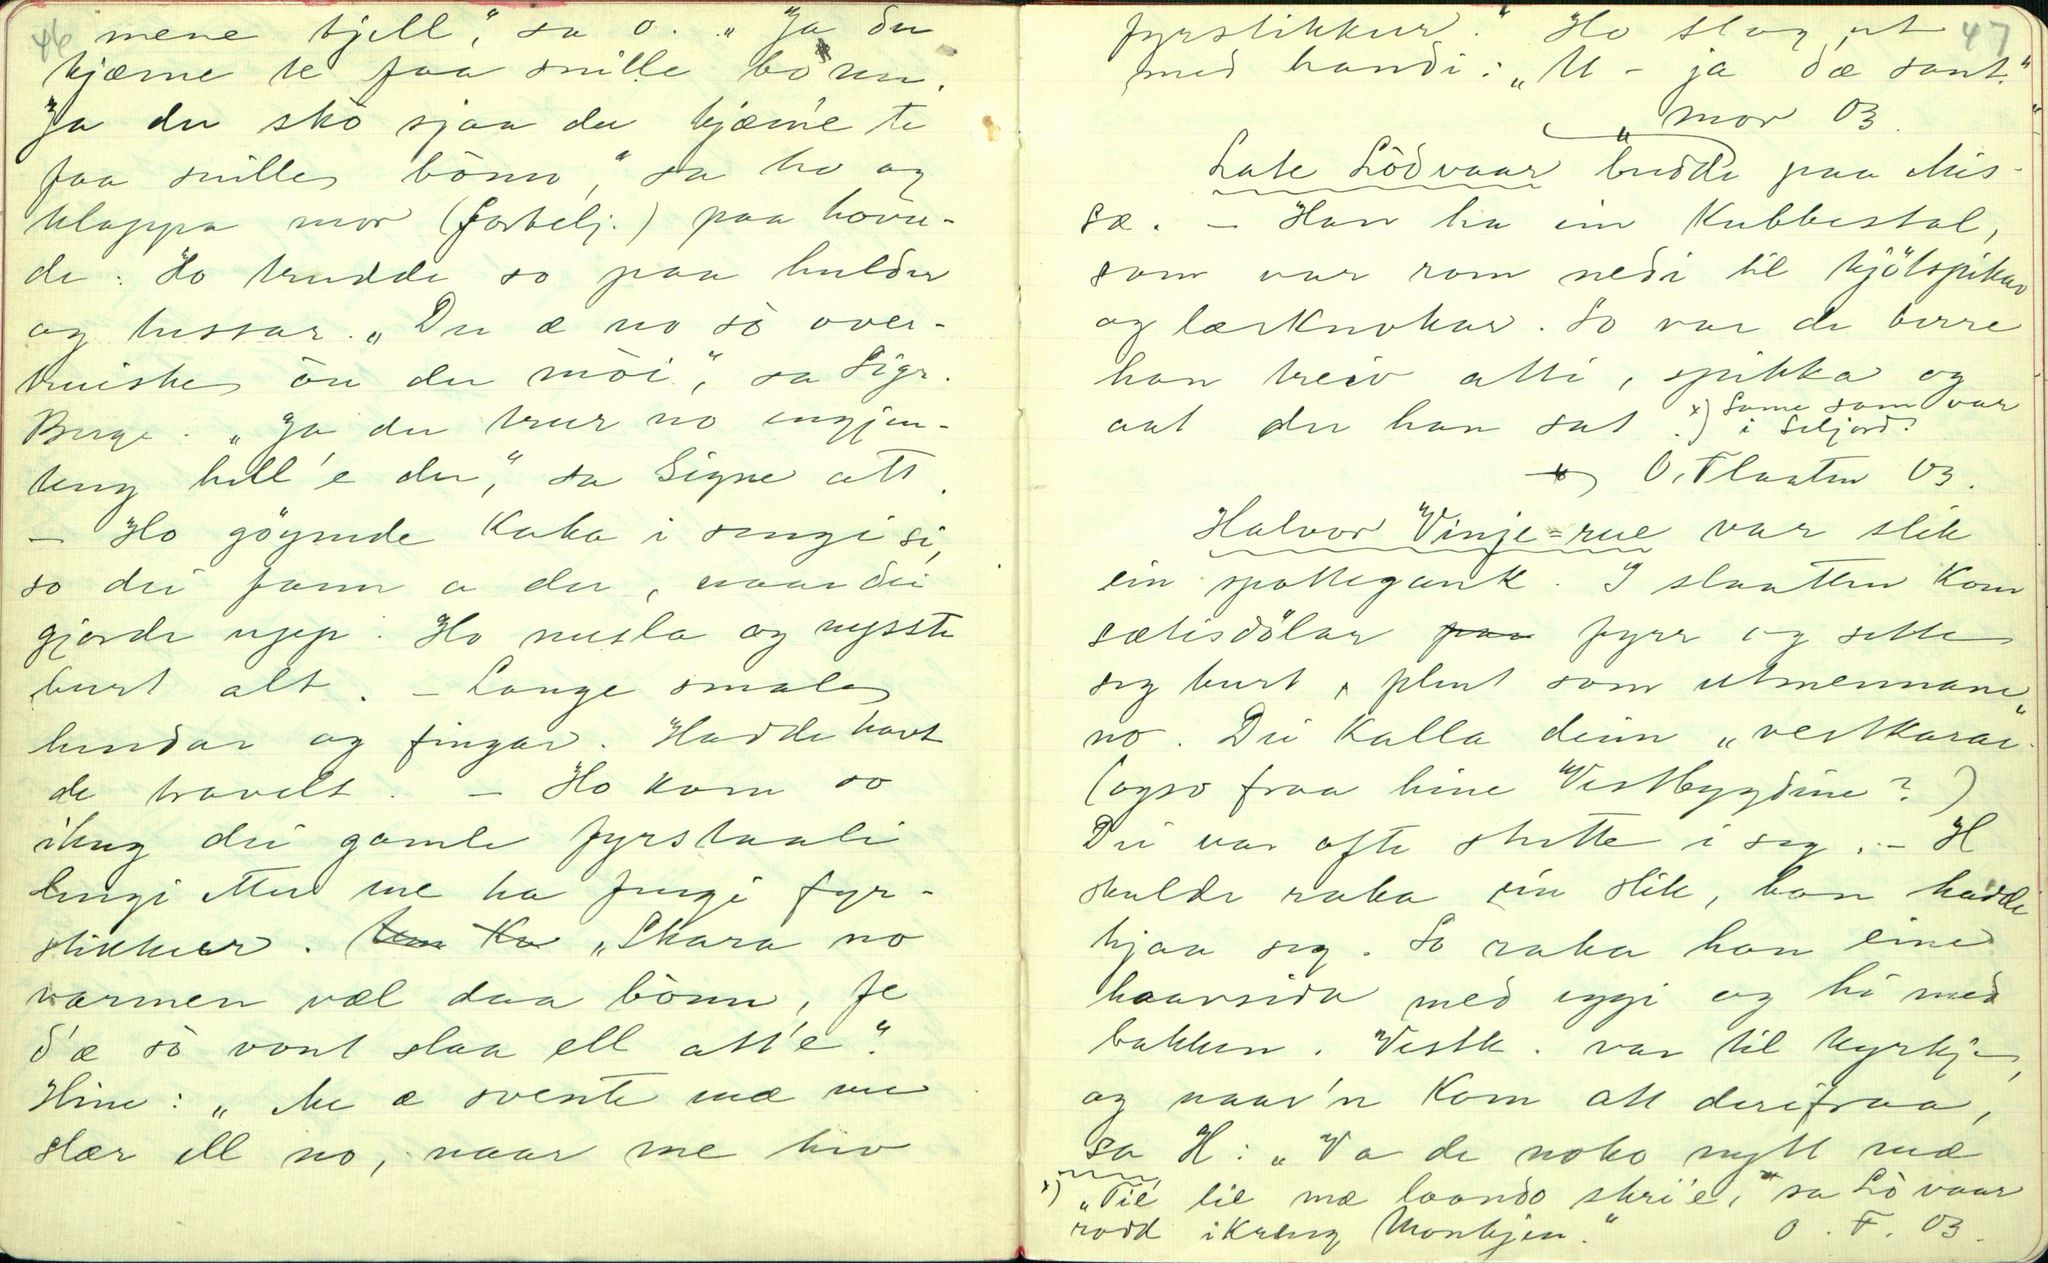 46
mene kjell", sa o. "Ja du
kjæme te faa snille bònn.
"Ja du skò sjaa du kjæm'e te
faa snille bònn," sa ho og
klappa mor (fortelj.) paa hovu-
de. Ho trudde so paa hulder
og tussar. "Du æ no sò over-
truiske òu du mòi", sa Sigr.
Berge. "Ja du trur no ingjen-
ting hell'e du," sa Signe att.
- Ho gøymde kaka i sengi si,
so dei fann a der, naar dei
gjorde upp. Ho nusla og nysste
burt alt. - Lange smale
hendar og fingar. Hadde havt
de travelt. - Ho kom so
ihug dei gamle fyrstaali
lengi etter me ha fengi fyr-
stikkur. "Skara no
varmen væl daa bònn, fe
d'æ sò vont slaa ell att'e".
Hine: "Me æ svente mæ me
slær ell no, naar me hev
47
fyrstikkur." Ho slog ut
med handi: "U - ja dæ sant."
mor 03.
Late Lödvaar budde paa Mis-
sæ. - Han ha ein kubbestol,
som var rom nedi til kjötspikar
og lærknokar. So var de berre
han treiv atti, spikka og
aat der han sat. x) Same som var
i Seljord?
O. Flaaten 03.
Halvor Vinje=rue var slik
ein spottegauk. I slaatten kom
sætisdölar paa fyrr og sette
seg burt, plent som utmennane
no. Dei kalla deim "vestkarar"
(ogso fraa hine Vestbygdine?)
Dei var ofte stutte i seg. - H
skulde raka ein slik, han hadde
hjaa seg. So raka han eine
haarsida med eggi og hi med
bakken. Vestk. var til kyrkje,
og naar'n kom att derifraa,
sa H: "Va de noko nytt mæ
x) "Til lie mæ laando skri'e," sa Lövaar
rodd ikring Monkjen." O. F. 03.